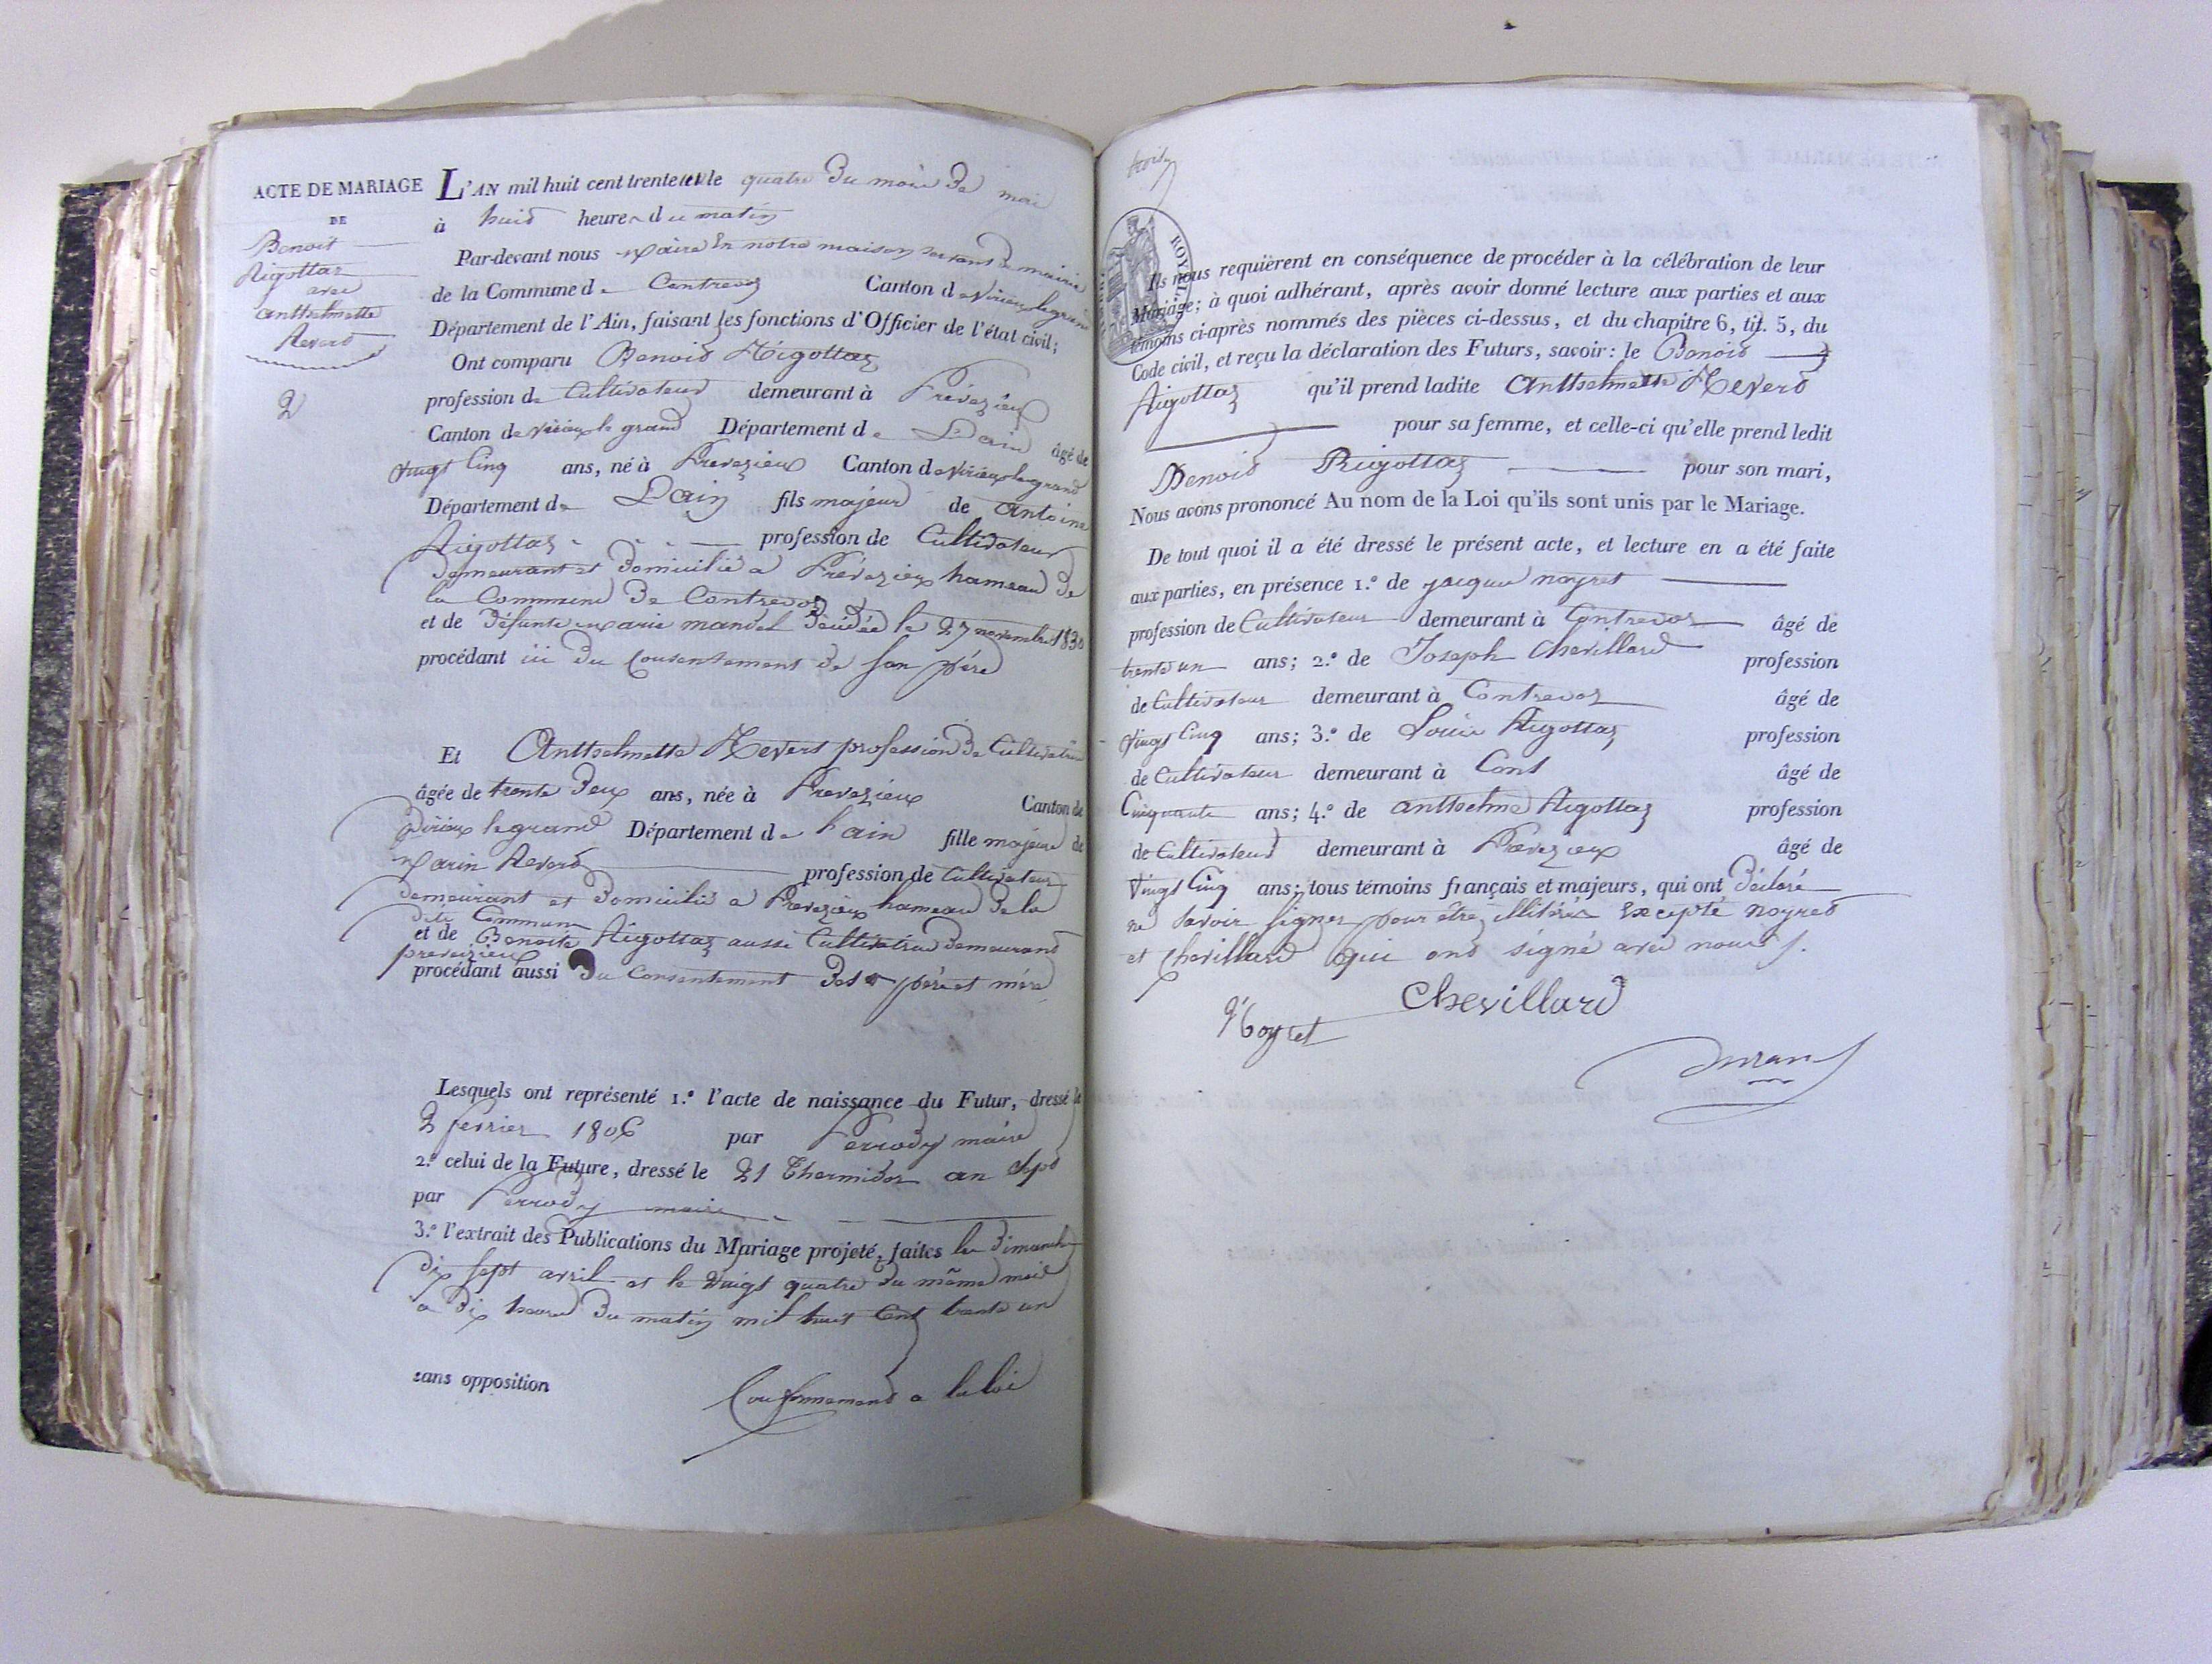 ACTE DE MARIAGE
DE
Benoit
Rigottaz
avec
Antthelmette
Reverd
2
L'AN mil huit cent trente un le quatre du mois de mai
à huid heures du matin
Par-devant nous Maire En notre maison servant de mairie
de la Commune de Contrevoz Canton de virieux le grand
Département de l'Ain, faisant les fonctions d'Officier de l'état civil;
Ont comparu Benoid Rigottaz
profession de Cultivateur demeurant à Prévezieux
Canton de virieux le grand Département de L'ain âgé de
vingt Cinq ans, né à Prevezieux Canton de Virieux le grand
Département de L'ain fils majeur de Antoine
Rigottaz profession de Cultivateur
demeurant et domicilié a Prévezieux hameau de
la Commune de Contrevoz
et de défunte marie mandel décédée le 27 novembre 1830
procédant ici du Consentement de son père
Et Antthelmette Reverd profession de Cultivatrice
âgée de trente deux ans, née à Prevezieux Canton de
virieux le grand Département de l'ain fille majeure de
Marin Reverd profession de Cultivateur
demeurant et domicilié a Prevezieux hameau de la
dite Commune
et de Benoite Rigottaz aussi Cultivatrice demeurand
prevezieux
procédant aussi du Consentement de ses père et mère
Lesquels ont représenté 1.º l'acte de naissance du Futur, dressé le
2 fevrier 1806 par Perrody maire
2.º celui de la Future, dressé le 21 Thermidor an sept
par Perrody maire
3.º l'extrait des Publications du Mariage projeté, faites le dimanche
dix sept avril et le vingt quatre du même mois
a dix heures du matin mil huit Cent trente un
sans opposition Conformement a la loi
trois
ROYAL
Ils nous requièrent en conséquence de procéder à la célébration de leur
Mariage; à quoi adhérant, après avoir donné lecture aux parties et aux
témoins ci-après nommés des pièces ci-dessus, et du chapitre 6, tit. 5, du
Code civil, et reçu la déclaration des Futurs, savoir: le Benoid
Rigottaz qu'il prend ladite Antthelmette Reverd
pour sa femme, et celle-ci qu'elle prend ledit
Benoid Rigottaz pour son mari,
Nous avons prononcé Au nom de la Loi qu'ils sont unis par le Mariage.
De tout quoi il a été dressé le présent acte, et lecture en a été faite
aux parties, en présence 1.º de jacque noyret
profession de Cultivateur demeurant à Contrevoz âgé de
trente un ans; 2.º de Joseph Chevillard profession
de Cultivateur demeurant à Contrevoz âgé de
Vingt Cinq ans; 3.º de Louis Rigottaz profession
de Cultivateur demeurant à Cont âgé de
Cinquante ans; 4.º de antthelme Rigottaz profession
de Cultivateur demeurant à Prevezieux âgé de
Vingt Cinq ans; tous témoins français et majeurs, qui ont déclaré
ne savoir signer pour être illitérés Excepté noyred
et Chevillard qui ond signé avec nous
Noyret
Chevillard